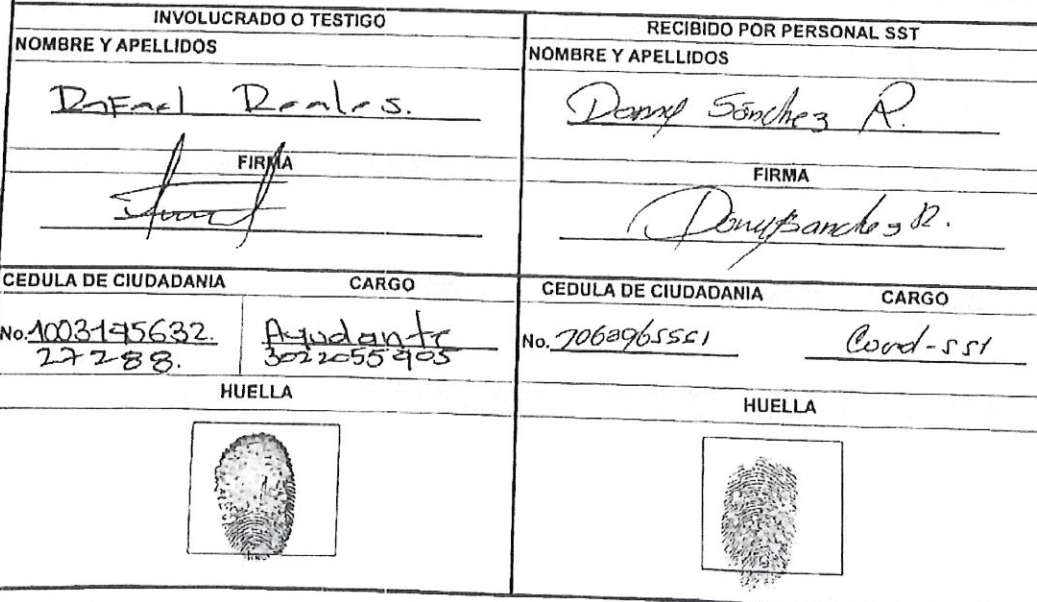 INVOLUCRADO O TESTIGO
NOMBRE Y APELLIDOS
Rafael Reales.
FIRMA
CEDULA DE CIUDADANIA CARGO
No. 1003195632. Ayudante
27288. 3022055905
HUELLA
RECIBIDO POR PERSONAL SST
NOMBRE Y APELLIDOS
Danny Sánchez R.
FIRMA
CEDULA DE CIUDADANIA CARGO
No. Coord-SST
HUELLA